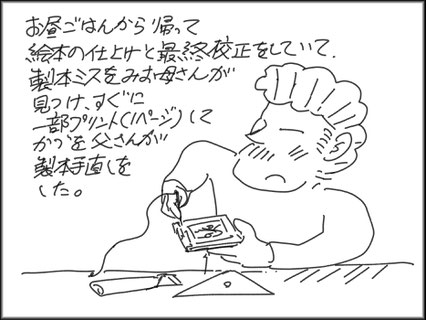 お昼ごはんから帰って
絵本の仕上げと最終校正をしていて、
製本ミスをみお母さんが
見つけ、すぐに
一部プリント(1ページ)して
かつを父さんが
製本手直しを
した。